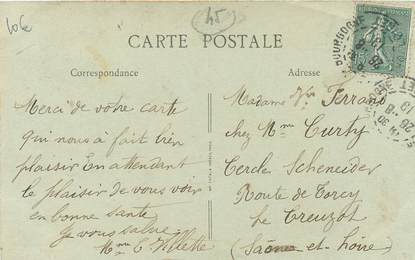 10€
45
CARTE POSTALE
Correspondance
Adresse
Merci de votre carte
qui nous a fait bien
plaisir En attendant
le plaisir de vous voir
en bonne santé
Je vous salue
Mme C. Villette
Madame Vve Ferrand
chez Mme Curty
Cercle Scheneider
Route de Torcy
le Creuzot
(Saône et Loire)